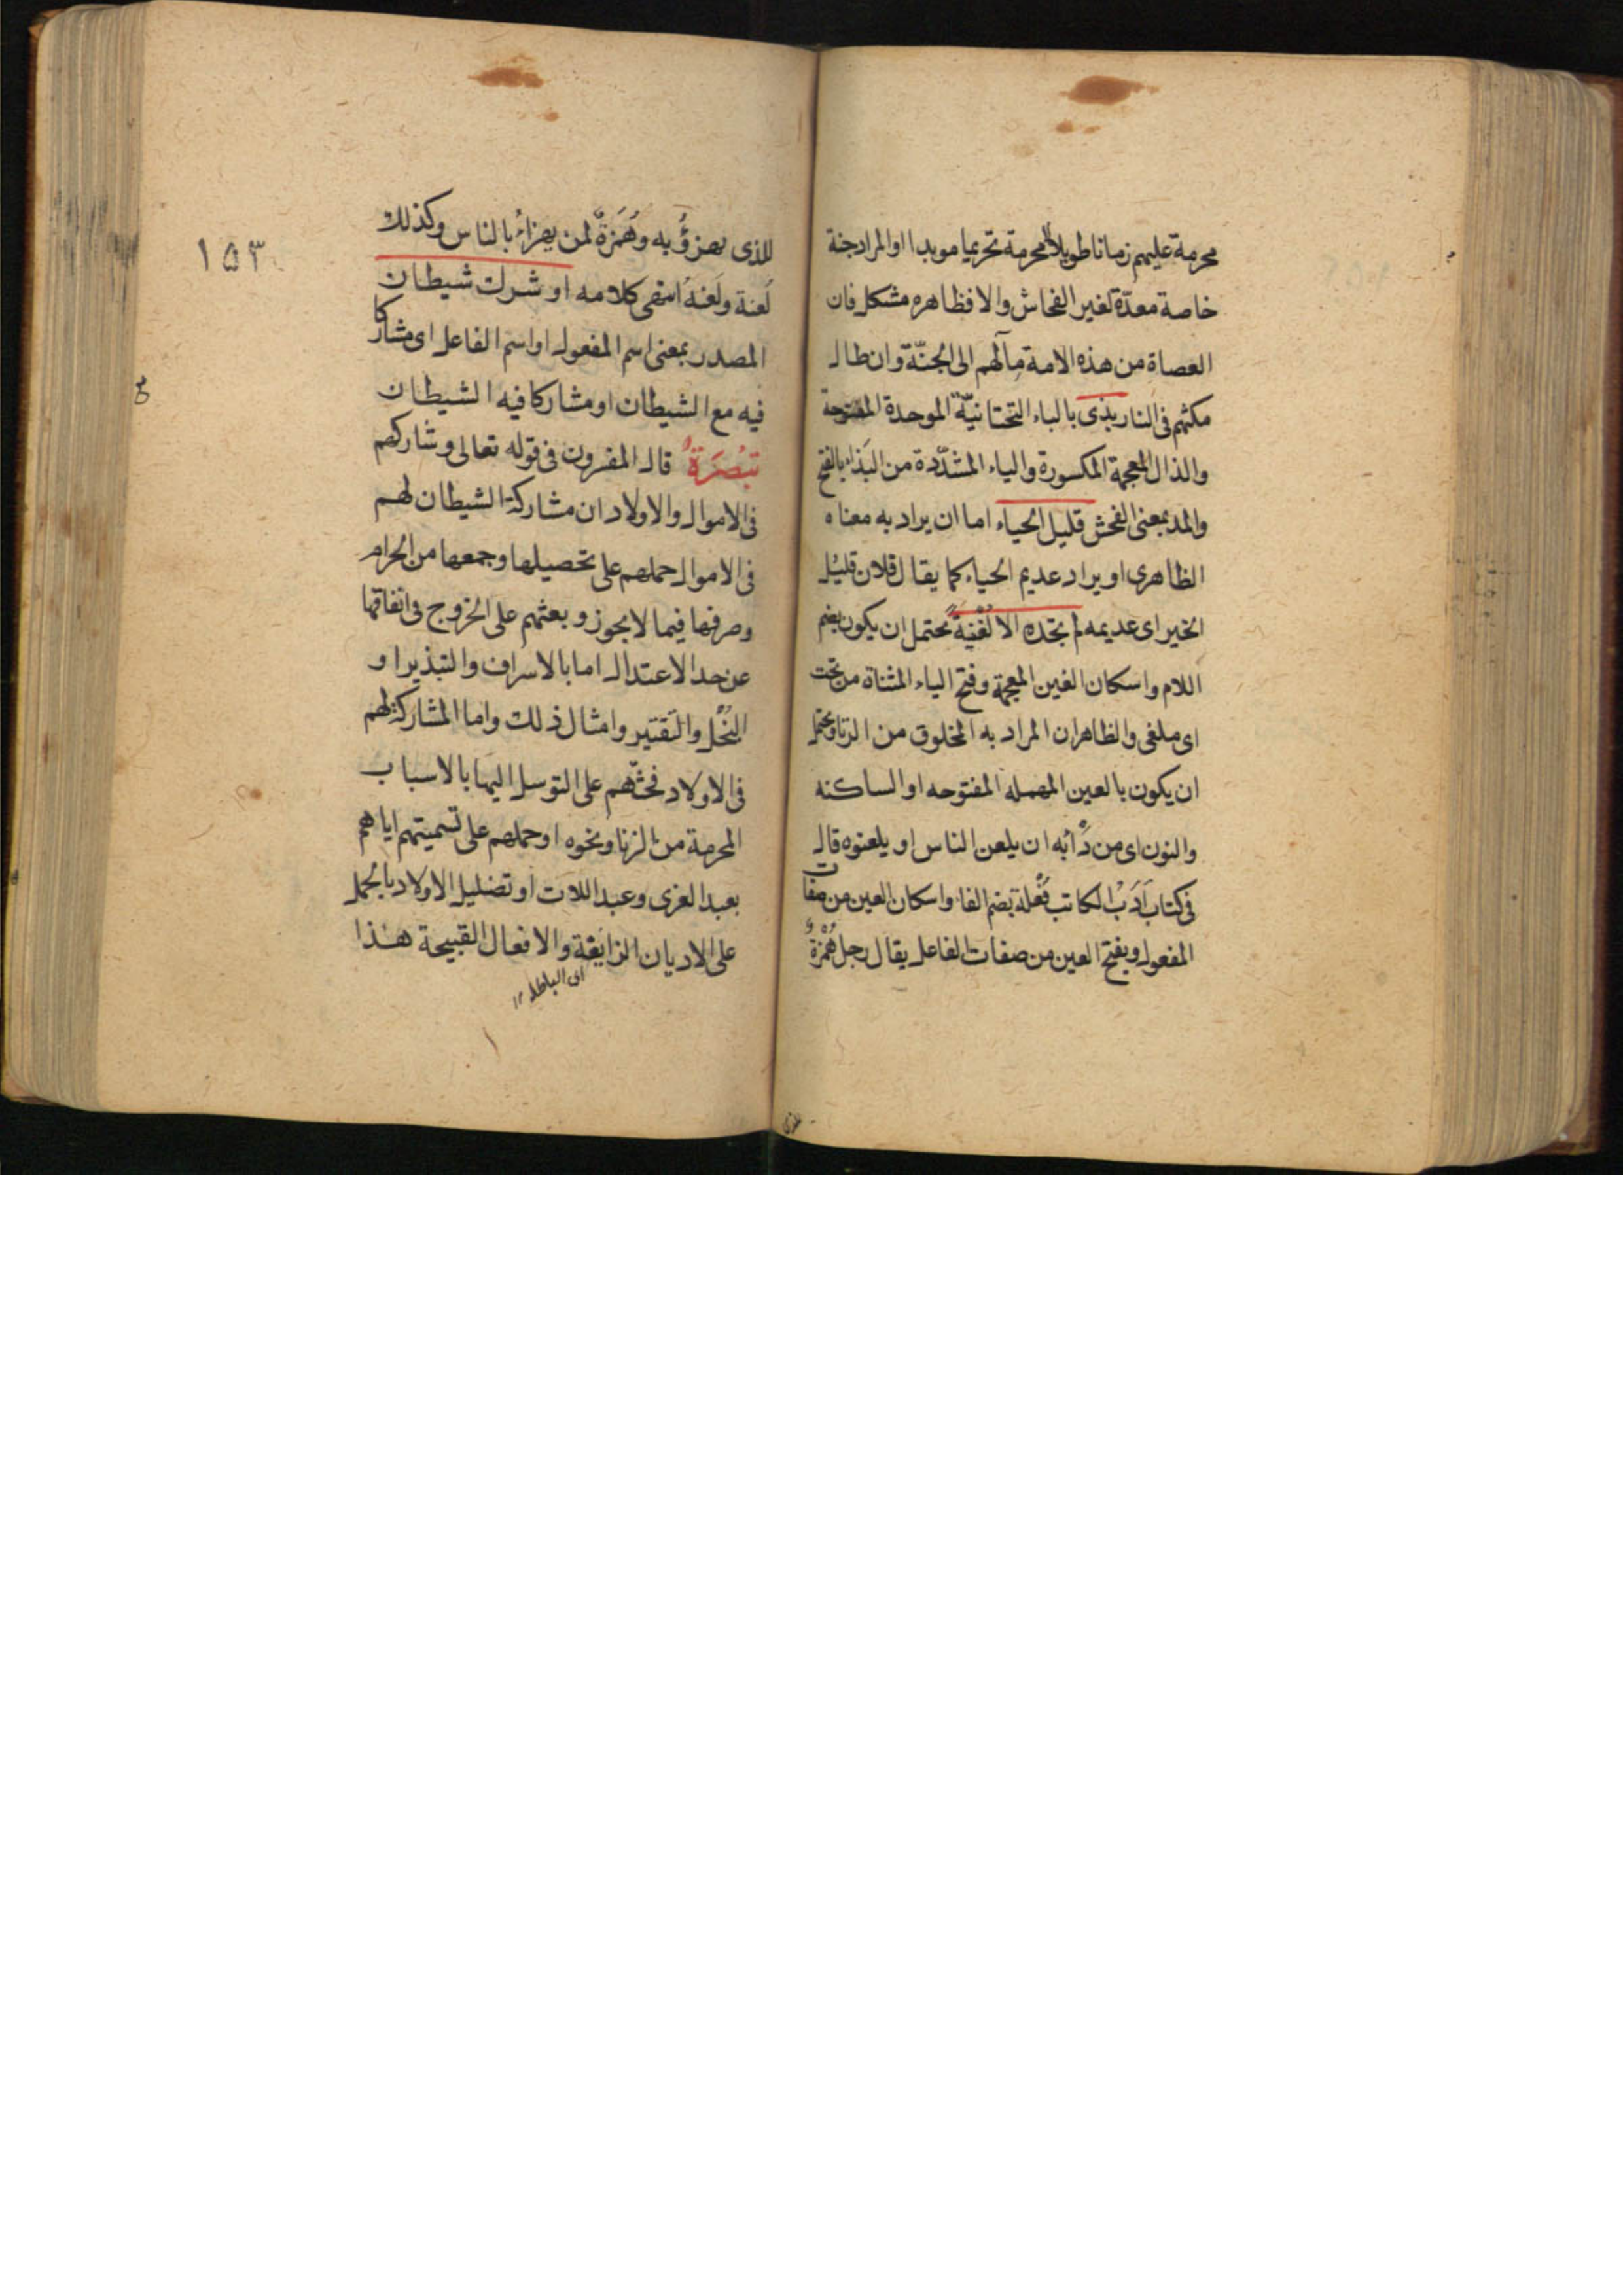 محرمة عليهم زمانا طويلا لا محرمة تحريما موبدا او المراد جنة
خاصة معدّة لغير الفحاش والا فظاهره مشكل فان
العصاة من هذه الامة مآلهم الى الجنّة وان طال
مكثهم فى النار بذى بالباء التحتانيّة الموحدة المفتوحة
والذال المعجمة المكسورة والياء المشدّدة من البَذاء بالفتح
والمد بمعنى الفحش قليل الحياء اما ان يراد به معناه
الظاهرى او يراد عديم الحياء كما يقال فلان قليل
الخير اى عديمه لم تجده الا لُغْيَةً يحتمل ان يكون بضم
اللام واسكان الغين المعجمة وفتح الياء المثناة من تحت
اى ملغى والظاهر ان المراد به المخلوق من الزنا ويحتمل
ان يكون بالعين المهمله المفتوحه او الساكنه
والنون اى من دَأبه ان يلعن الناس او يلعنوه قال
فى كتاب اَدَبْ الكاتب فُعْلة بضم الفاء واسكان العين من صفات
المفعول وبفتح العين من صفات الفاعل يقال رجل هُمْزةٌ
للذى يهزؤُ به وهُمَزةٌ لمن يهزاءُ بالناس وكذلك
لُعنة ولُعَنهُ انتهى كلامه او شرك شيطان
المصدر بمعنى اسم المفعول او اسم الفاعل اى مشاركا
فيه مع الشيطان او مشاركا فيه الشيطان
تَبْصَرَةٌ قال المفسرون فى قوله تعالى وشاركهم
فى الاموال والاولاد ان مشاركة الشيطان لهم
فى الاموال حملهم على تحصيلها وجمعها من الحرام
وصرفها فيما لا يجوز وبعثهم على الخروج فى انفاقها
عن حد الاعتدال اما بالاسراف والتبذير او
البُخْل والتقتير وامثال ذلك واما المشاركة لهم
فى الاولاد فحثّهم على التوسل اليها بالاسباب
المحرمة من الزنا ونحوه او حملهم على تسميتهم اياهم
بعبد العزى وعبد اللات او تضليل الاولاد بالحمل
على الاديان الزايغة والافعال القبيحة هذا
اى الباطله ١٢
١٥٣